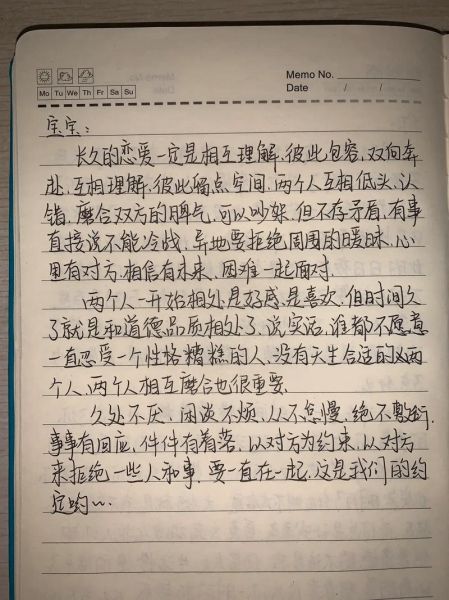 Memo No.
Mo Tu We Th Fr Sa Su
Date / /
宝宝：
长久的恋爱一定是相互理解.彼此包容,双向奔
赴.互相理解.彼此留点空间.两个人互相低头.认
错.磨合双方的脾气.可以吵架.但不存矛盾.有事
直接说不能冷战.异地要拒绝周围的暧昧.心
里有对方.相信有未来.困难一起面对.
两个人一开始相处是好感.是喜欢.但时间久
了就是和道德品质相处了.说实话.谁都不愿意
一直忍受一个性格糟糕的人.没有天生合适的两
个人.两个人相互磨合也很重要.
久处不厌.闲谈不烦.从不怠慢.绝不敷衍.
事事有回应.件件有着落.以对方为约束.以对方
来拒绝一些人和事.要一直在一起.这是我们的约
定哟~